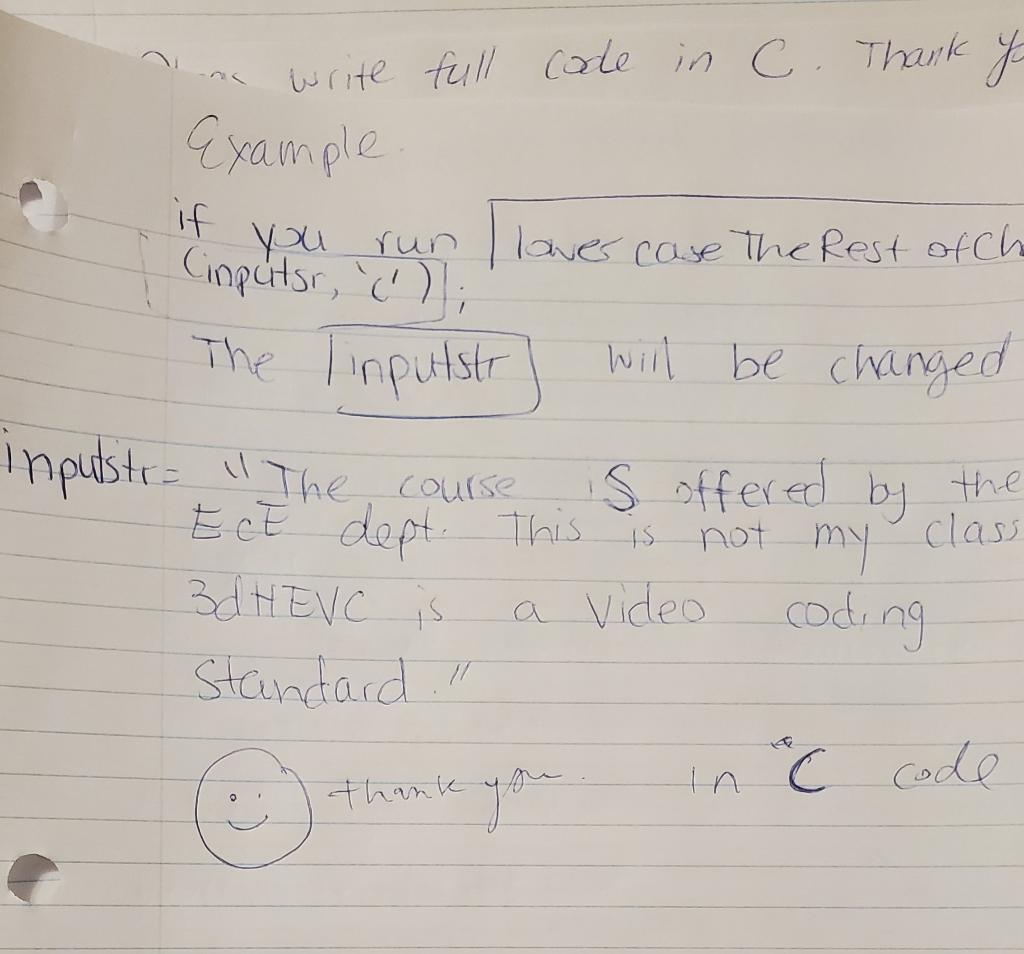 write full code in C. Thank
Example.
if you run lower case The Rest of Ch
(inputsr, 'c');
The inputstr will be changed
inputstr= "The course is offered by the
EcE dept. This is not my class
3dHEVC is a video coding
Standard."
thank you. in C code